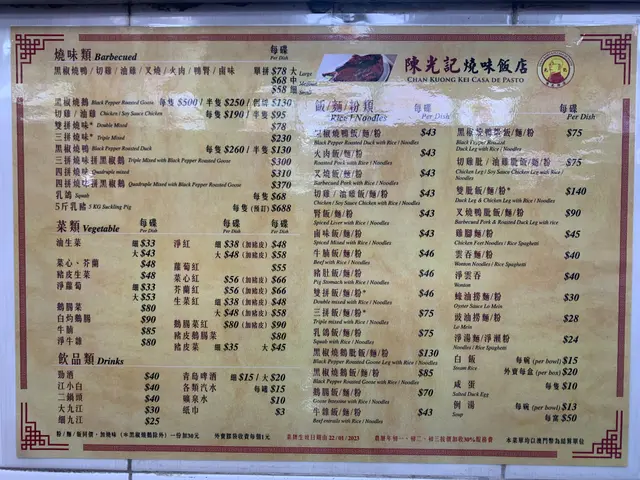 陳光記燒味飯店
CHAN KUONG KEI CASA DE PASTO
燒味類 Barbecued 每碟 Per Dish
黑椒燒鴨/切雞/油雞/叉燒/火肉/鴨腎/鹵味 單拼 $78 大 Large
$68 中 Medium
$58 細
黑椒燒鵝 Black Pepper Roasted Goose 每隻 $500/半隻 $250/例牌 $130
切雞/油雞 Chicken / Soy Sauce Chicken 每隻 $190/半隻 $95
雙拼燒味* Double Mixed $78
三拼燒味* Triple Mixed $230
黑椒燒鴨 Black Pepper Roasted Duck 每隻 $260/半隻 $130
三拼燒味拼黑椒鵝 Triple Mixed with Black Pepper Roasted Goose $300
四拼燒味 Quadruple mixed $310
四拼燒味拼黑椒鵝 Quadruple Mixed with Black Pepper Roasted Goose $370
乳鴿 Squab 每隻 $68
5斤乳豬 5 KG Suckling Pig 每隻(預訂) $688
菜類 Vegetable 每碟 Per Dish 每碟 Per Dish 每碟 Per Dish
油生菜 細 $33
大 $43
菜心、芥蘭 $48
豬皮生菜 $48
淨蘿蔔 細 $33
大 $53
鵝腸菜 $80
白灼鵝腸 $90
牛腩 $85
淨牛雜 $80
淨紅 細 $38 (加豬皮) $48
大 $48 (加豬皮) $58
蘿蔔紅 $55
菜心紅 $56 (加豬皮) $66
芥蘭紅 $56 (加豬皮) $66
生菜紅 細 $38 (加豬皮) $48
大 $48 (加豬皮) $58
鵝腸菜紅 $80 (加豬皮) $90
豬皮鵝腸菜 $80
豬皮菜 細 $35 大 $45
飲品類 Drinks
勁酒 $40
江小白 $40
二鍋頭 $40
大九江 $30
細九江 $25
青島啤酒 細 $15/大 $20
各類汽水 每罐 $15
礦泉水 $10
紙巾 $3
飯/麵/粉類 每碟
Rice / Noodles Per Dish
黑椒燒鴨飯/麵/粉 $43
Black Pepper Roasted Duck with Rice / Noodles
火肉飯/麵/粉 $43
Roasted Pork with Rice / Noodles
叉燒飯/麵/粉 $43
Barbecued Pork with Rice / Noodles
切雞/油雞飯/麵/粉 $43
Chicken / Soy Sauce Chicken with Rice / Noodles
腎飯/麵/粉 $43
Spiced Liver with Rice / Noodles
鹵味飯/麵/粉 $43
Spiced Mixed with Rice / Noodles
牛腩飯/麵/粉 $46
Beef with Rice / Noodles
豬肚飯/麵/粉 $46
Pig Stomach with Rice / Noodles
雙拼飯/麵/粉* $46
Double mixed with Rice / Noodles
三拼飯/麵/粉* $75
Triple mixed with Rice / Noodles
乳鴿飯/麵/粉 $75
Squab with Rice / Noodles
黑椒燒鵝髀飯/麵/粉 $130
Black Pepper Roasted Goose Leg with Rice / Noodles
黑椒燒鵝飯/麵/粉 $85
Black Pepper Roasted Goose with Rice / Noodles
鵝腸飯/麵/粉 $70
Goose Intestine with Rice / Noodles
牛雜飯/麵/粉 $43
Beef entrails with Rice / Noodles
每碟
Per Dish
黑椒燒鴨髀飯/麵/粉 $75
Black Pepper Roasted
Duck Leg with Rice / Noodles
切雞髀/油雞髀飯/麵/粉 $75
Chicken Leg / Soy Sauce Chicken Leg with Rice / Noodles
雙髀飯/麵/粉* $140
Duck Leg & Chicken Leg with Rice / Noodles
叉燒鴨髀飯/麵/粉 $90
Barbecued Pork & Roasted Duck Leg with rice
雞腳麵/粉 $45
Chicken Feet Noodles / Rice Spaghetti
雲吞麵/粉 $40
Wonton Noodles / Rice Spaghetti
淨雲吞 $40
Wonton
蠔油撈麵/粉 $30
Oyster Sauce Lo Mein
豉油撈麵/粉 $28
Lo Mein
淨湯麵/淨瀨粉 $24
Noodles / Rice Spaghetti
白飯 每碗 (per bowl) $15
Steam Rice 外賣每盒 (per box) $20
咸蛋 每隻 $10
Salted Duck Egg
例湯 每碗 (per bowl) $13
Soup 每窩 $50
粉/麵/飯同價,加燒味(黑椒燒鵝除外)一份加30元
外賣膠袋收費每個1元
餐牌生效日期由 22/01/2023
農曆年初一、初二、初三按價加收30%服務費
本菜單均以澳門幣為結算單位